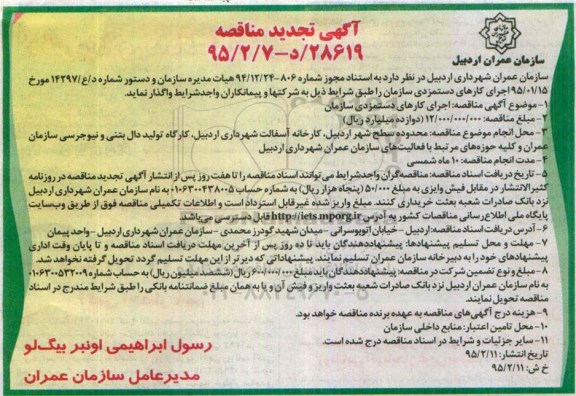 آگهی تجدید مناقصه
۲۸۶۱۹/د-۹۵/۲/۷
سازمان عمران اردبیل
سازمان عمران شهرداری اردبیل در نظر دارد به استناد مجوز شماره ۸۰۶-۹۴/۱۲/۲۴ هیات مدیره سازمان و دستور شماره د/ع/۱۴۲۹۷ مورخ
۹۵/۰۱/۱۵ اجرای کارهای دستمزدی سازمان را طبق شرایط ذیل به شرکتها و پیمانکاران واجدشرایط واگذار نماید.
۱-موضوع آگهی مناقصه: اجرای کارهای دستمزدی سازمان
۲-مبلغ مناقصه: ۱۲/۰۰۰/۰۰۰/۰۰۰ (دوازده میلیارد ریال)
۳-محل انجام موضوع مناقصه: محدوده سطح شهر اردبیل، کارخانه آسفالت شهرداری اردبیل، کارگاه تولید دال بتنی و نیوجرسی سازمان
عمران و کلیه حوزه‌های مرتبط با فعالیت‌های سازمان عمران شهرداری اردبیل
۴-مدت انجام مناقصه: ۱۰ ماه شمسی
۵-تاریخ دریافت اسناد مناقصه: مناقصه‌گران واجدشرایط می‌توانند اسناد مناقصه را تا هفت روز پس از انتشار آگهی تجدید مناقصه در روزنامه
کثیرالانتشار در مقابل فیش واریزی به مبلغ ۵۰/۰۰۰ (پنجاه هزار ریال) به شماره حساب ۰۱۰۶۳۰۰۴۳۸۰۰۵ به نام سازمان عمران شهرداری اردبیل
نزد بانک صادرات شعبه بعثت خریداری کنند. مبلغ واریز شده غیرقابل استرداد است و اطلاعات تکمیلی مناقصه فوق از طریق وب‌سایت
پایگاه ملی اطلاع‌رسانی مناقصات کشور به آدرس http://iets.mporg.ir قابل دسترسی می‌باشد.
۶-آدرس دریافت اسناد مناقصه: اردبیل -خیابان اتوبوسرانی -میدان شهید گودرز محمدی -سازمان عمران شهرداری اردبیل -واحد پیمان
۷- مهلت و محل تسلیم پیشنهادها: پیشنهاددهندگان باید تا ده روز پس از آخرین مهلت دریافت اسناد مناقصه و تا پایان وقت اداری
پیشنهادهای خود را به دبیرخانه سازمان عمران تسلیم نمایند. پیشنهاداتی که دیرتر از این مهلت تسلیم گردد تحویل گرفته نخواهد شد.
۸-مبلغ و نوع تضمین شرکت در مناقصه: پیشنهاددهندگان باید مبلغ ۶۰۰/۰۰۰/۰۰۰ ریال (ششصد میلیون ریال) به حساب شماره ۰۱۰۶۳۰۰۵۳۲۰۰۹
به نام سازمان عمران اردبیل نزد بانک صادرات شعبه بعثت واریز و فیش آن و یا به همان مبلغ ضمانتنامه بانکی را طبق شرایط مندرج در اسناد
مناقصه تحویل نمایند.
۹-هزینه درج آگهی‌های مناقصه به عهده برنده مناقصه خواهد بود.
۱۰-محل تامین اعتبار: منابع داخلی سازمان
۱۱-سایر جزئیات و شرایط در اسناد مناقصه درج شده است.
تاریخ انتشار: ۹۵/۲/۱۱
خ ش: ۹۵/۲/۱۱
رسول ابراهیمی اونبر بیگ‌لو
مدیرعامل سازمان عمران